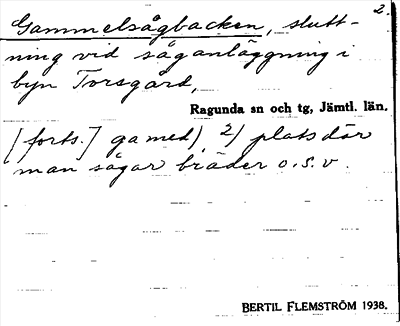 2.
Gammelsågbacken, slutt-
ning vid såganläggning i
byn Torsgård,
Ragunda sn och tg, Jämtl. län.
[forts.] ga med), 2) plats där
man sågar bräder o.s.v.
BERTIL FLEMSTRÖM 1938.